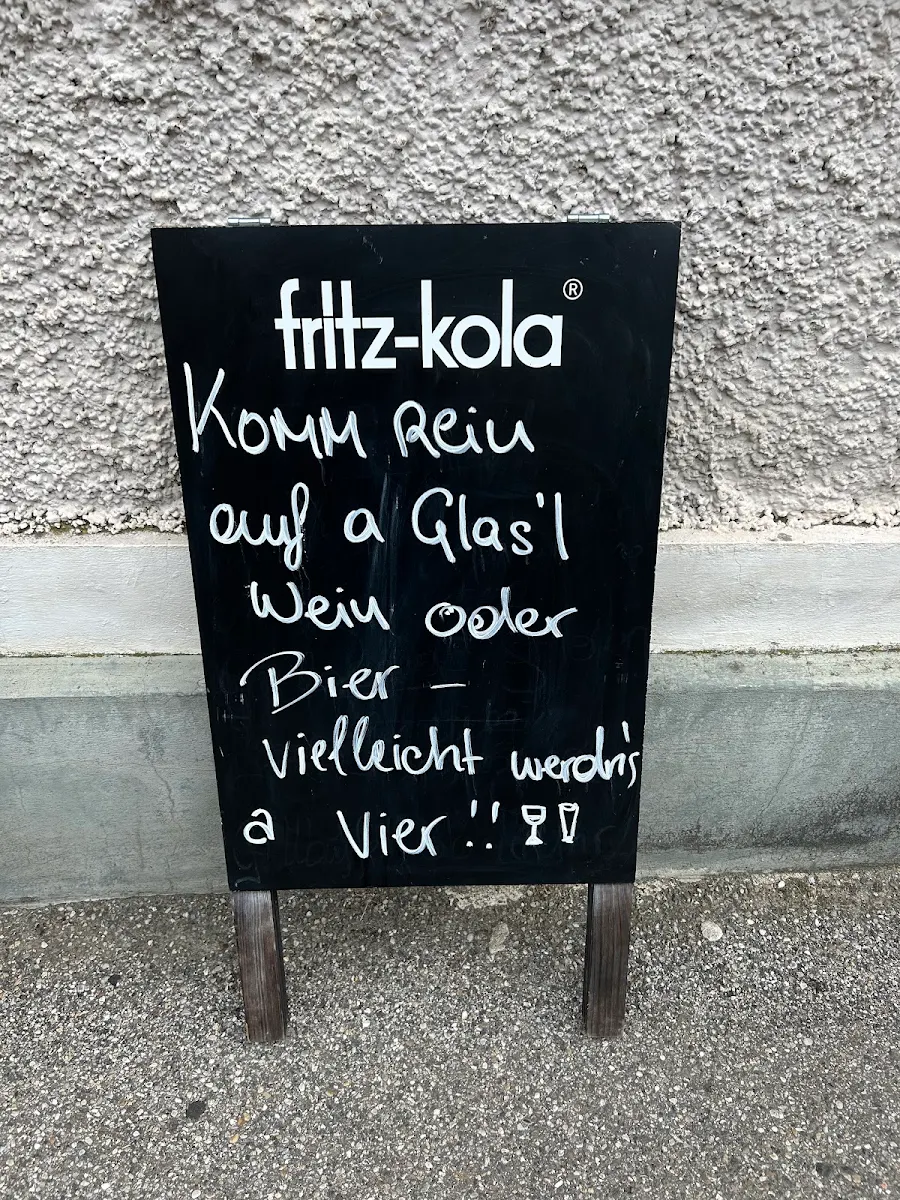 fritz-kola®
Komm rein
auf a Glas'l
Wein oder
Bier –
vielleicht werdn's
a Vier!!